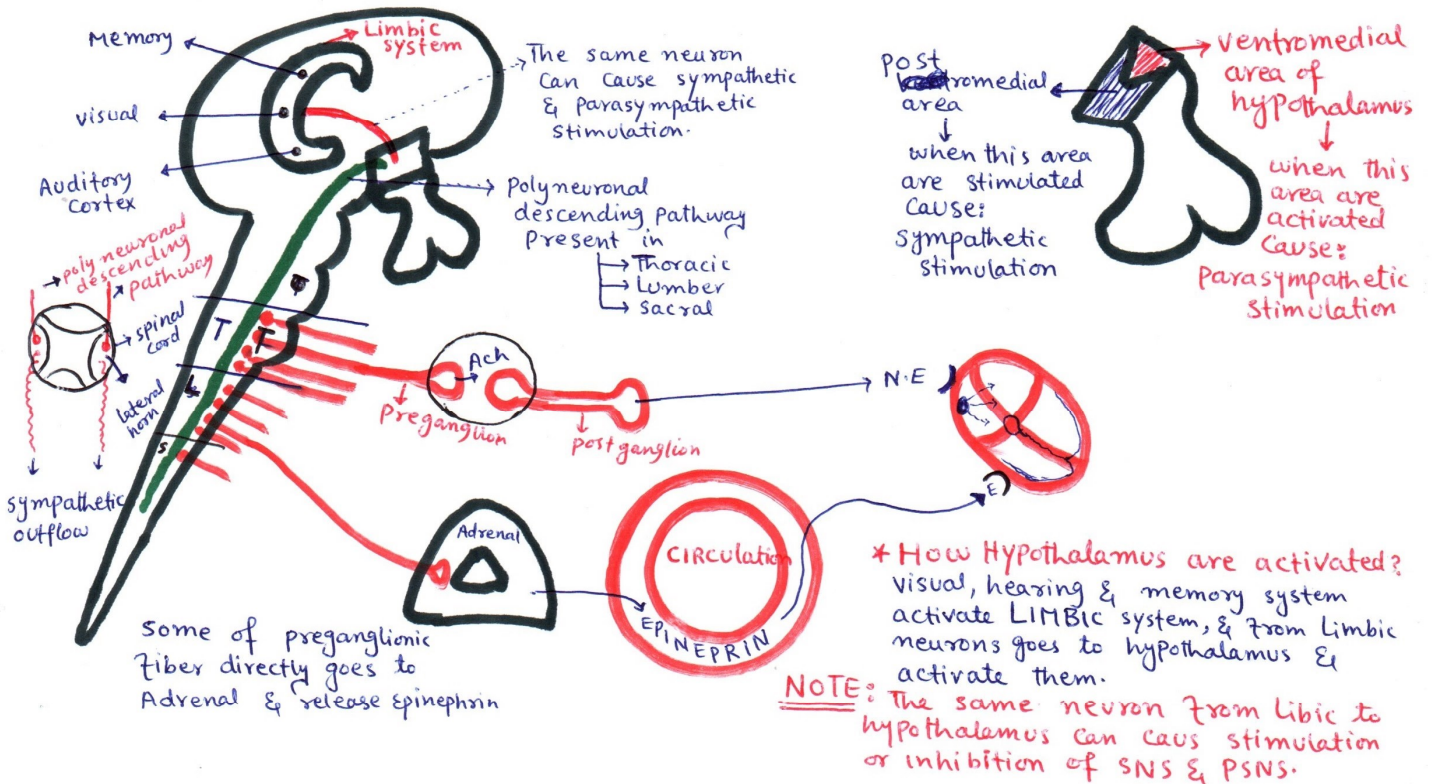 Memory
visual
Auditory
cortex
Limbic
system
The same neuron
can cause sympathetic
& parasympathetic
stimulation.
polyneuronal
descending pathway
present in
Thoracic
Lumber
sacral
post
tromedial
area
when this area
are stimulated
cause:
sympathetic
stimulation
ventromedial
area of
hypothalamus
when this
area are
activated
cause:
parasympathetic
stimulation
poly neuronal
descending
pathway
spinal
cord
lateral
horn
sympathetic
outflow
T
T
L
S
Ach
preganglion
post ganglion
N.E
E
Adrenal
CIRCULATION
EPINEPRIN
some of preganglionic
fiber directly goes to
Adrenal & release Epinephrin
* How Hypothalamus are activated?
visual, hearing & memory system
activate LIMBIC system, & from Limbic
neurons goes to hypothalamus &
activate them.
NOTE: The same neuron from Libic to
hypothalamus can caus stimulation
or inhibition of SNS & PSNS.